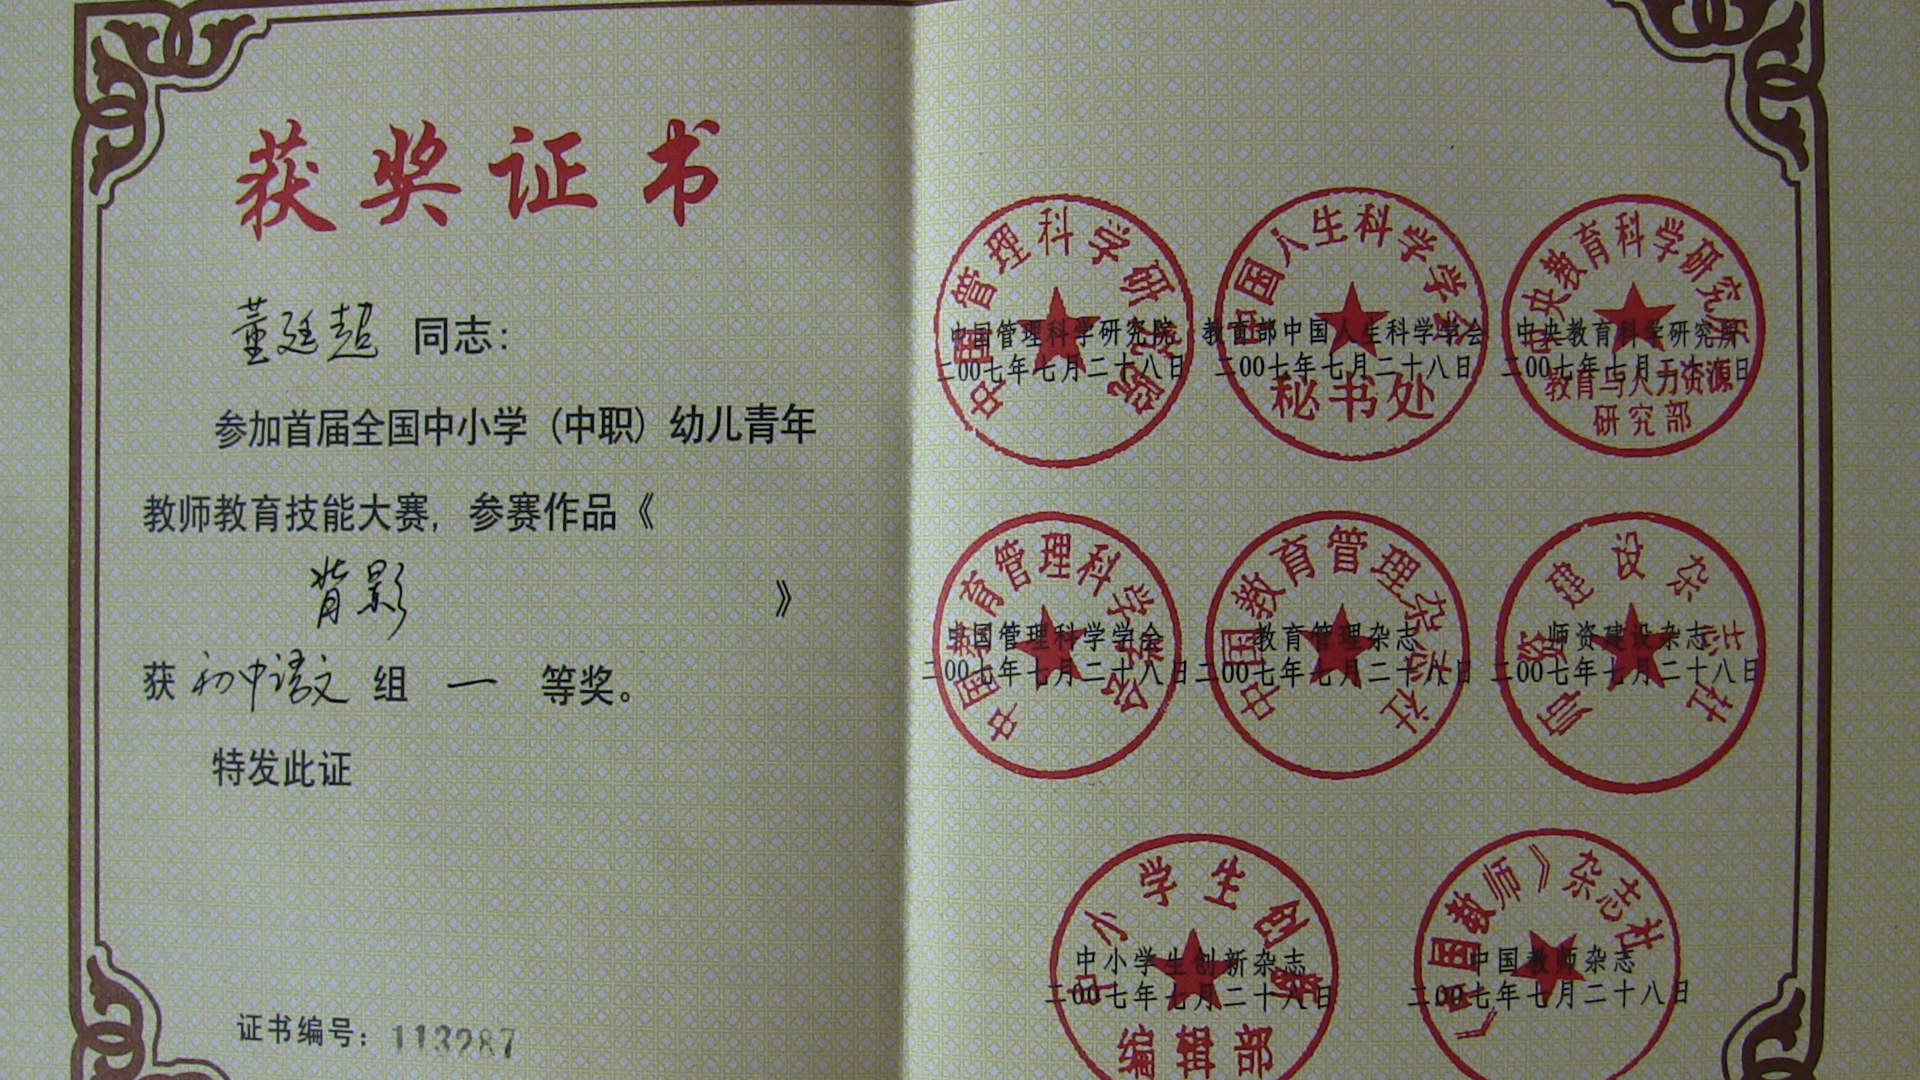 获奖证书
董廷超 同志：
参加首届全国中小学（中职）幼儿青年
教师教育技能大赛，参赛作品《
背影 》
获 初中语文 组 一 等奖。
特发此证
证书编号：113287
中国管理科学研究院
中国管理科学研究院
二00七年七月二十八日
中国人生科学学会
教育部中国人生科学学会
二00七年七月二十八日
秘书处
中央教育科学研究所
中央教育科学研究所
二00七年七月二十八日
教育与人力资源
研究部
中国教育管理科学学会
中国管理科学学会
二00七年七月二十八日
中国教育管理杂志社
教育管理杂志
二00七年七月二十八日
师资建设杂志社
师资建设杂志
二00七年七月二十八日
中小学生创新
中小学生创新杂志
二00七年七月二十八日
编辑部
《中国教师》杂志社
中国教师杂志
二00七年七月二十八日